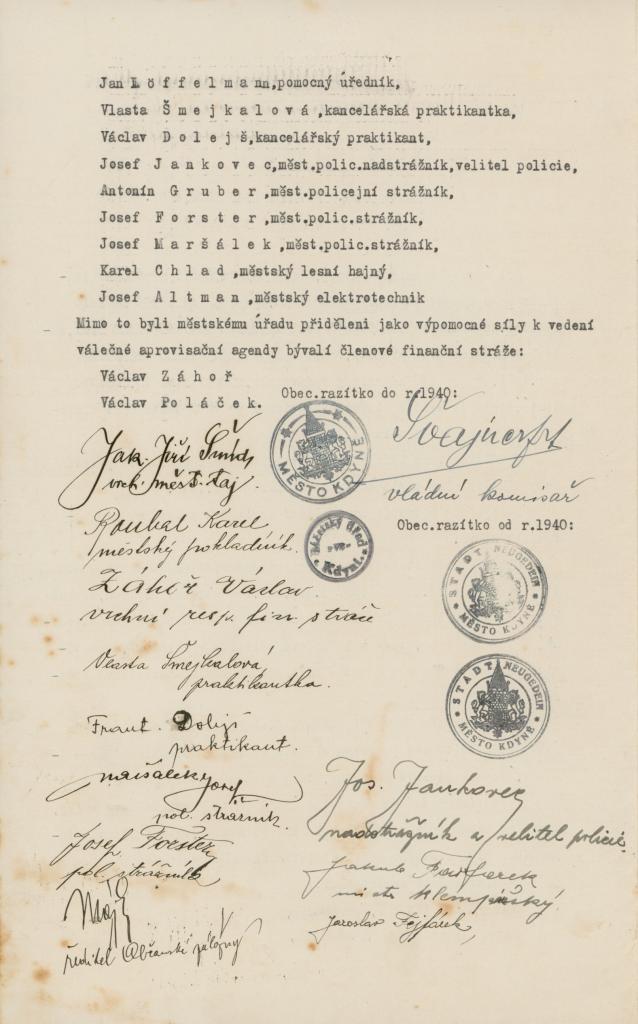 Jan L ö f f e l m a n n,pomocný úředník,
Vlasta Š m e j k a l o v á ,kancelářská praktikantka,
Václav D o l e j š,kancelářský praktikant,
Josef J a n k o v e c,měst.polic.nadstrážník,velitel policie,
Antonín G r u b e r ,měst.policejní strážník,
Josef F o r s t e r ,měst.polic.strážník,
Josef M a r š á l e k ,měst.polic.strážník,
Karel C h l a d ,městský lesní hajný,
Josef A l t m a n ,městský elektrotechnik
Mimo to byli městskému úřadu přiděleni jako výpomocné síly k vedení
válečné aprovisační agendy bývalí členové finanční stráže:
Václav Z á h o ř
Václav P o l á č e k.
Obec.razítko do r.1940:
MĚSTO KDYNĚ
Jak. Jiří
vrch. měst. taj.
vládní komisař
Roubal Karel
městský pokladník.
Městský úřad
ve
Kdyni.
Obec.razítko od r.1940:
STADT NEUGEDEIN
MĚSTO KDYNĚ
Záhoř Václav
vrchní resp. fin. stráže
Vlasta Šmejkalová
praktikantka.
STADT NEUGEDEIN
MĚSTO KDYNĚ
Frant.
praktikant.
Josef
pol. strážník.
Jos. Jankovec
nadstrážník a velitel policie
Josef Forster
pol. strážník
Jakub
Jaroslav
ředitel Občanské záložny